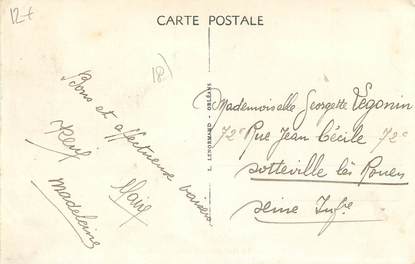 12+
CARTE POSTALE
18
Bons et affectueux baisers
Marie
Madeleine
L. LENORMAND - ORLÉANS
Mademoiselle Georgette Légonin
72c Rue Jean Cécile 72c
Sotteville lès Rouen
Seine Infre